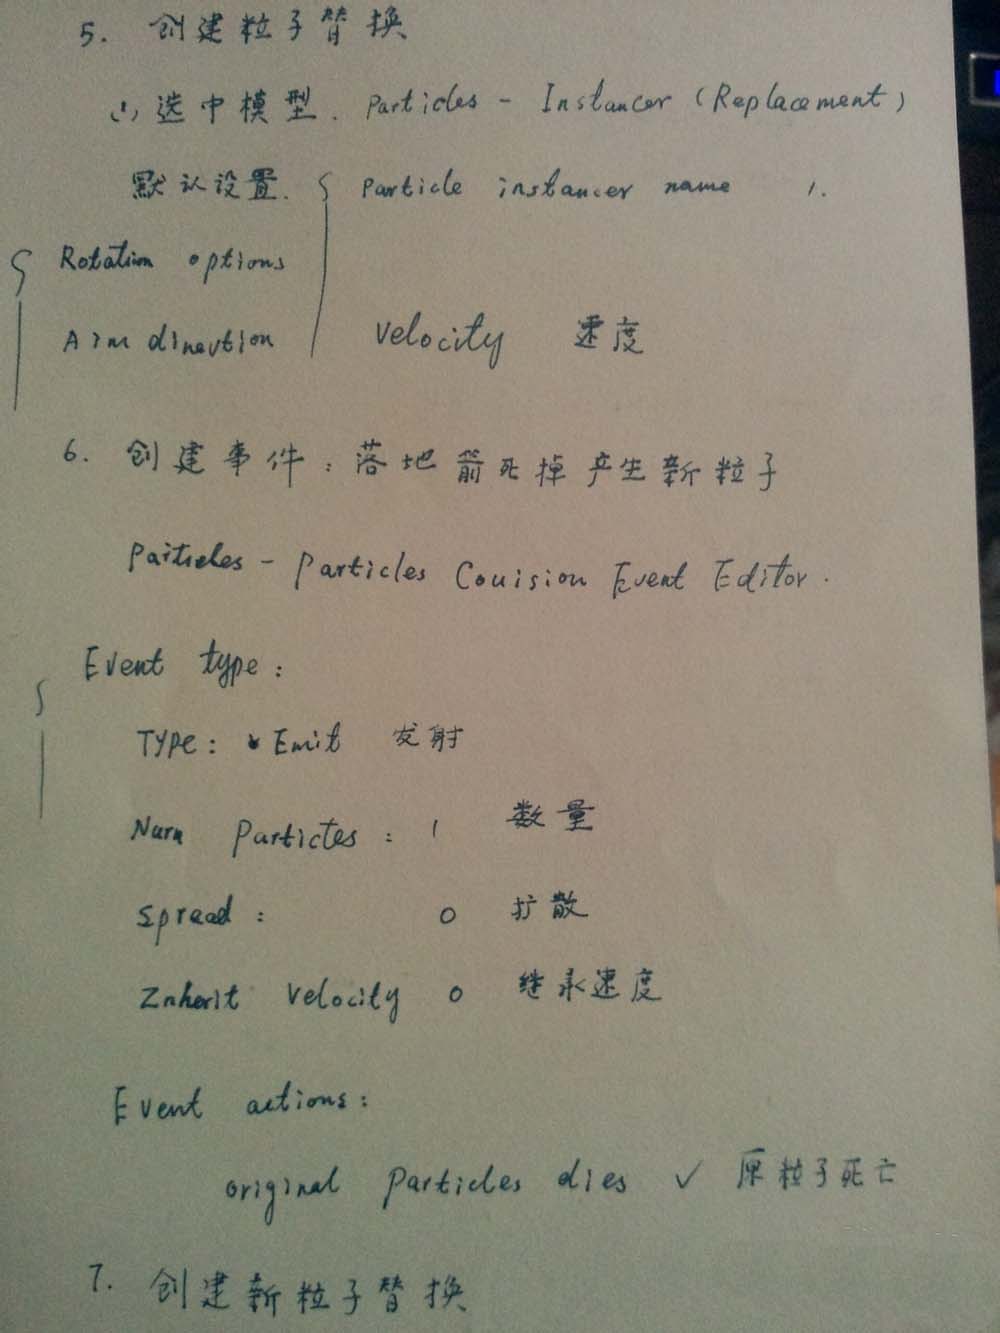 5. 创建粒子替换
(1) 选中模型. Particles - Instancer (Replacement)
默认设置. { Particle instancer name 1.
Rotation options
Aim dinevtion Velocity 速度
6. 创建事件: 落地箭死掉产生新粒子
Particles - Particles Couision Event Editor.
Event type:
TYPE: Emit 发射
Num Partictes: 1 数量
Spread: 0 扩散
Znherit Velocity 0 继承速度
Event actions:
original Particles dies ✓ 原粒子死亡
7. 创建新粒子替换